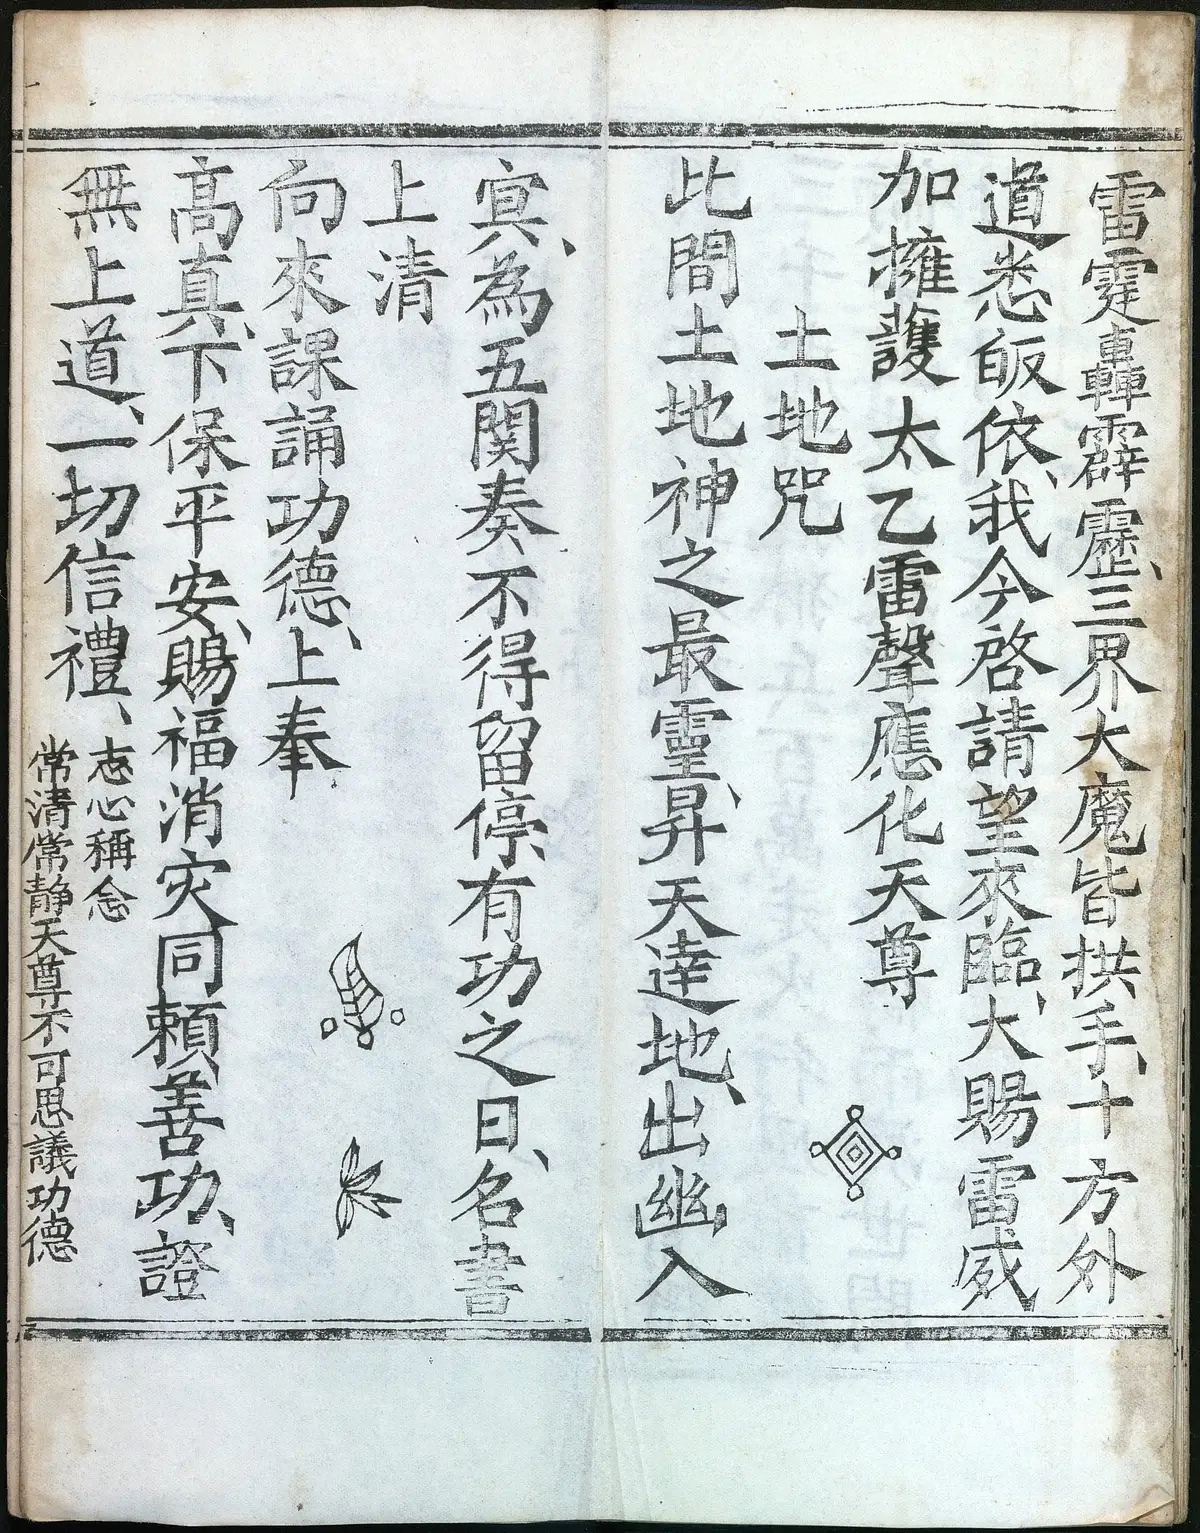 雷霆轟霹靂、三界大魔皆拱手、十方外
道悉皈依、我今啓請望來臨、大賜雷威
加擁護太乙雷聲應化天尊
土地咒
此間土地神之最靈、昇天達地、出幽入
冥、為五関奏不得留停、有功之日、名書
上清
向來課誦功德、上奉
髙真、下保平安、賜福消灾同賴善功、證
無上道、一切信禮、志心稱念
常清常静天尊不可思議功德